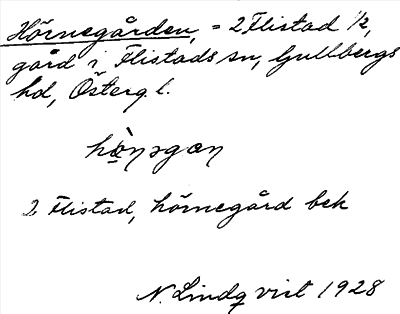 Hörnegården, = 2 Flistad ½,
gård i Flistads sn, Gullbergs
hd, Österg. l.
2 Flistad, hörnegård bek
N. Lindqvist 1928